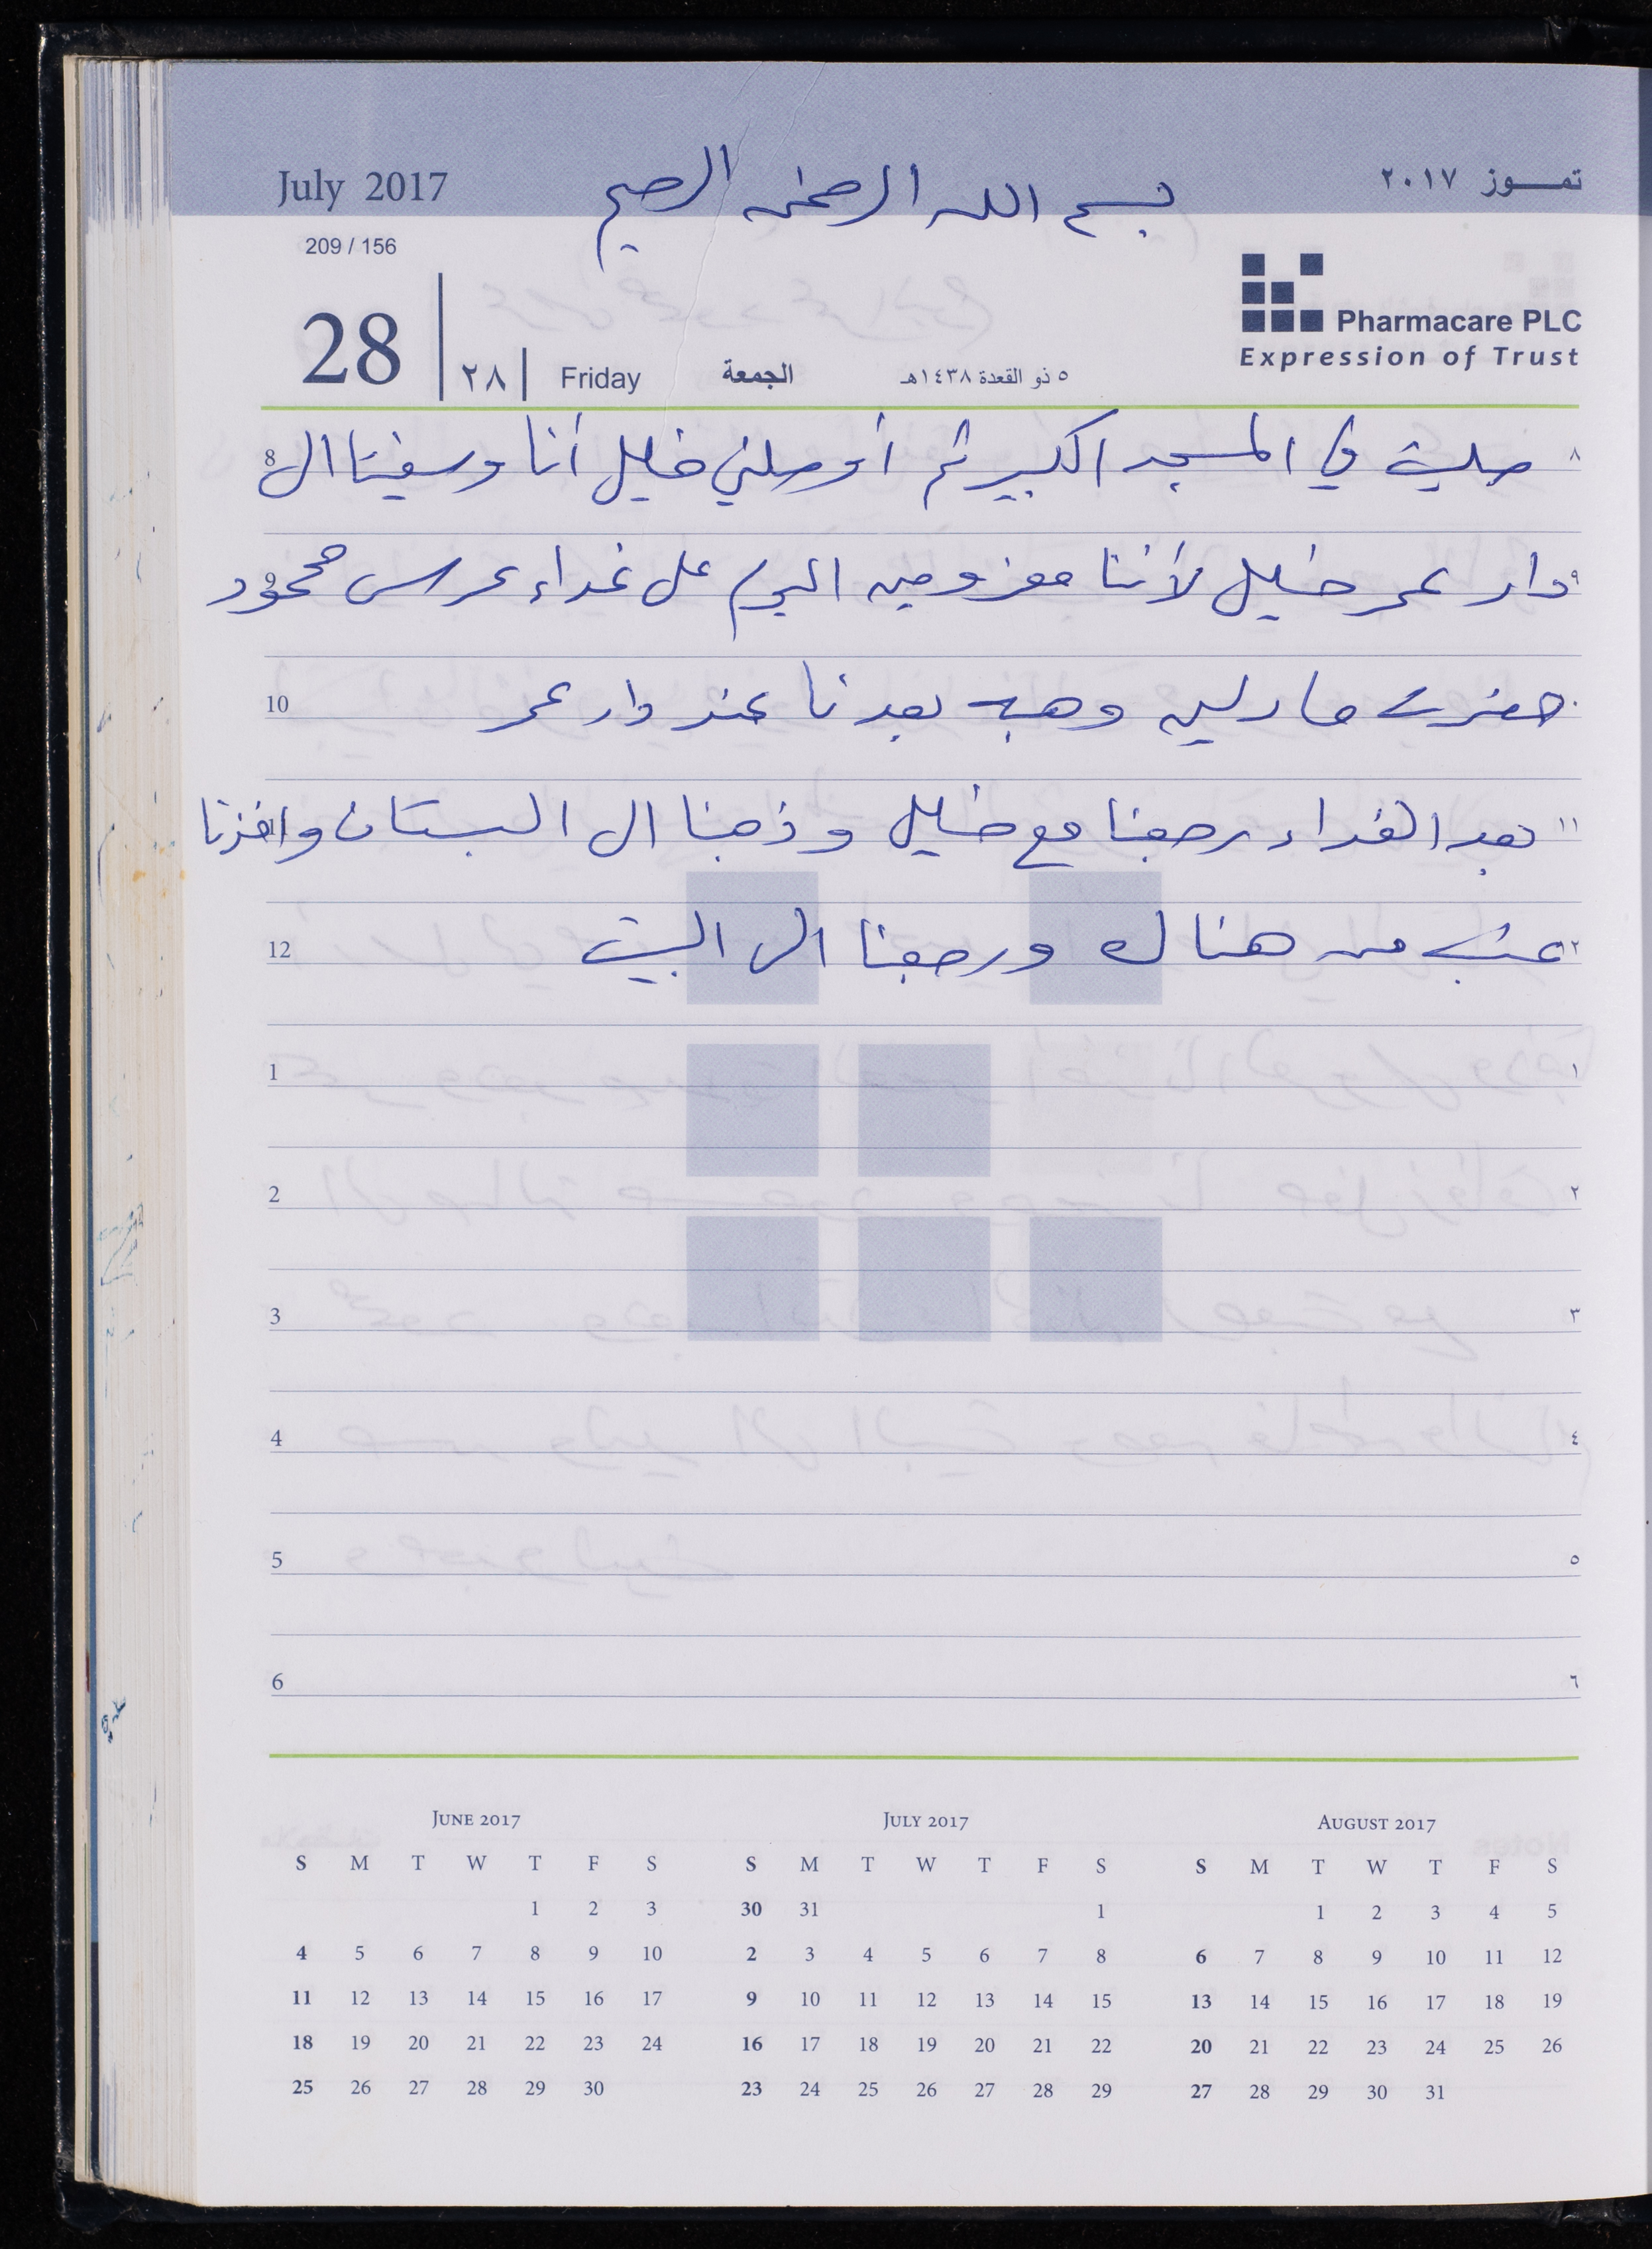 July 2017
بسم الله الرحمن الرحيم
تمــوز ٢٠١٧
209 / 156
28
٢٨
Friday
الجمعة
٥ ذو القعدة ١٤٣٨هـ
Pharmacare PLC
Expression of Trust
8 صليت في المسجد الكبير ثم أوصلني خليل أنا و الى ٨
9 دار عمر خليل لأننا معزومين اليوم على غداء عرس محمود ٩
10 حضرت مادلين وهبه بعدنا عند دار عمر
بعد الغداء رجعنا مع خليل وذهبنا الى البستان واخذنا ١١
12 عنب من هناك ورجعنا الى البيت ١٢
1 ١
2 ٢
3 ٣
4 ٤
5 ٥
6 ٦
JUNE 2017
S M T W T F S
1 2 3
4 5 6 7 8 9 10
11 12 13 14 15 16 17
18 19 20 21 22 23 24
25 26 27 28 29 30
JULY 2017
S M T W T F S
30 31 1
2 3 4 5 6 7 8
9 10 11 12 13 14 15
16 17 18 19 20 21 22
23 24 25 26 27 28 29
AUGUST 2017
S M T W T F S
1 2 3 4 5
6 7 8 9 10 11 12
13 14 15 16 17 18 19
20 21 22 23 24 25 26
27 28 29 30 31